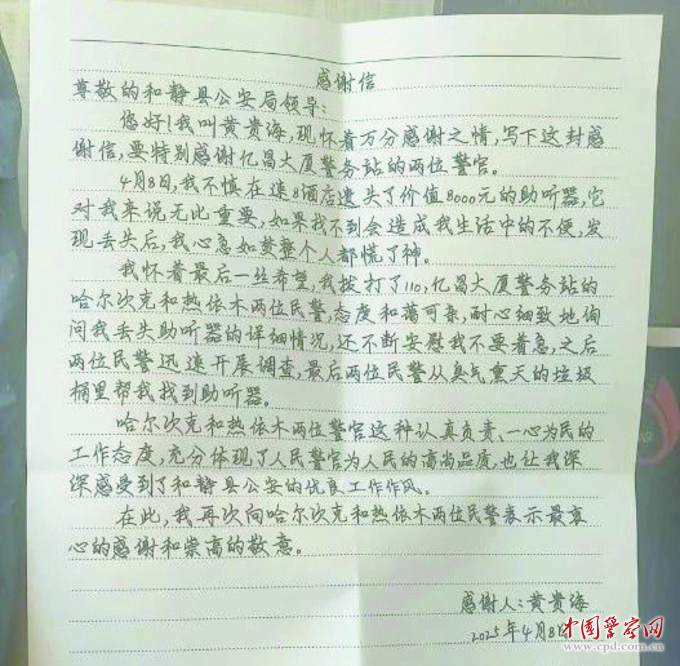 感谢信
尊敬的和静县公安局领导：
您好！我叫黄贵海，现怀着万分感谢之情，写下这封感
谢信，要特别感谢亿昌大厦警务站的两位警官。
4月8日，我不慎在速8酒店遗失了价值8000元的助听器，它
对我来说无比重要，如果找不到会造成我生活中的不便，发
现丢失后，我心急如焚整个人都慌了神。
我怀着最后一丝希望，我拨打了110，亿昌大厦警务站的
哈尔次克和热依木两位民警态度和蔼可亲，耐心细致地询
问我丢失助听器的详细情况，还不断安慰我不要着急，之后
两位民警迅速开展调查，最后两位民警从臭气熏天的垃圾
桶里帮我找到助听器。
哈尔次克和热依木两位警官这种认真负责、一心为民的
工作态度，充分体现了人民警官为人民的高尚品质，也让我深
深感受到了和静县公安的优良工作作风。
在此，我再次向哈尔次克和热依木两位民警表示最衷
心的感谢和崇高的敬意。
感谢人：黄贵海
2025年4月8日
中国警察网
www.cpd.com.cn